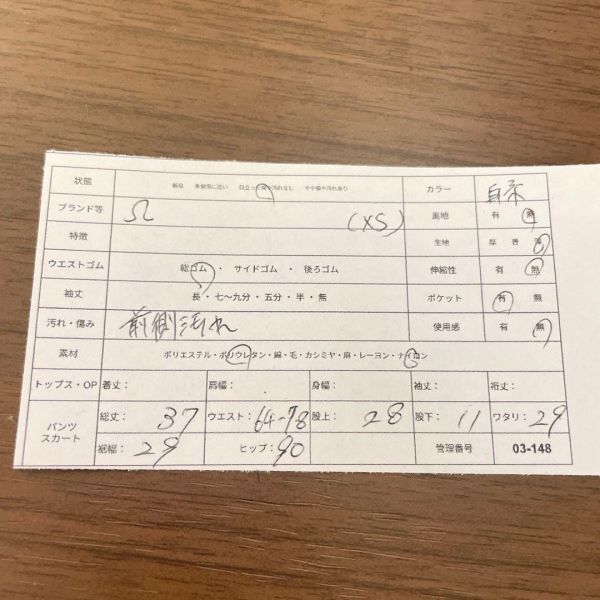 状態 新品 未使用に近い 目立った傷や汚れなし やや傷や汚れあり カラー 白系
ブランド等 Ω (XS) 裏地 有 無
特徴 生地 厚 普 薄
ウエストゴム 総ゴム ・ サイドゴム ・ 後ろゴム 伸縮性 有 無
袖丈 長・七〜九分・五分・半・無 ポケット 有 無
汚れ・傷み 前側汚れ 使用感 有 無
素材 ポリエステル・ポリウレタン・綿・毛・カシミヤ・麻・レーヨン・ナイロン
トップス・OP 着丈: 肩幅: 身幅: 袖丈: 裄丈:
パンツ スカート 総丈: 37 ウエスト: 64-78 股上: 28 股下: 11 ワタリ: 29
裾幅: 29 ヒップ: 90 管理番号 03-148